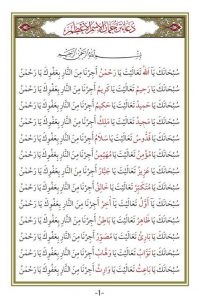 دعاء ترجمان الاسم الاعظم
بسم الله الرحمن الرحيم
سُبْحَانَكَ يَا اَللّٰهُ تَعَالَيْتَ يَا رَحْمٰنُ اَجِرْنَا مِنَ النَّارِ بِعَفْوِكَ يَا رَحْمٰنُ
سُبْحَانَكَ يَا رَحِيمُ تَعَالَيْتَ يَا كَرِيمُ اَجِرْنَا مِنَ النَّارِ بِعَفْوِكَ يَا رَحْمٰنُ
سُبْحَانَكَ يَا حَمِيدُ تَعَالَيْتَ يَا حَكِيمُ اَجِرْنَا مِنَ النَّارِ بِعَفْوِكَ يَا رَحْمٰنُ
سُبْحَانَكَ يَا مَجِيدُ تَعَالَيْتَ يَا مَلِكُ اَجِرْنَا مِنَ النَّارِ بِعَفْوِكَ يَا رَحْمٰنُ
سُبْحَانَكَ يَا قُدُّوسُ تَعَالَيْتَ يَا سَلَامُ اَجِرْنَا مِنَ النَّارِ بِعَفْوِكَ يَا رَحْمٰنُ
سُبْحَانَكَ يَا مُؤْمِنُ تَعَالَيْتَ يَا مُهَيْمِنُ اَجِرْنَا مِنَ النَّارِ بِعَفْوِكَ يَا رَحْمٰنُ
سُبْحَانَكَ يَا عَزِيزُ تَعَالَيْتَ يَا جَبَّارُ اَجِرْنَا مِنَ النَّارِ بِعَفْوِكَ يَا رَحْمٰنُ
سُبْحَانَكَ يَا مُتَكَبِّرُ تَعَالَيْتَ يَا خَالِقُ اَجِرْنَا مِنَ النَّارِ بِعَفْوِكَ يَا رَحْمٰنُ
سُبْحَانَكَ يَا اَوَّلُ تَعَالَيْتَ يَا اٰخِرُ اَجِرْنَا مِنَ النَّارِ بِعَفْوِكَ يَا رَحْمٰنُ
سُبْحَانَكَ يَا ظَاهِرُ تَعَالَيْتَ يَا بَاطِنُ اَجِرْنَا مِنَ النَّارِ بِعَفْوِكَ يَا رَحْمٰنُ
سُبْحَانَكَ يَا بَارِئُ تَعَالَيْتَ يَا مُصَوِّرُ اَجِرْنَا مِنَ النَّارِ بِعَفْوِكَ يَا رَحْمٰنُ
سُبْحَانَكَ يَا تَوَّابُ تَعَالَيْتَ يَا وَهَّابُ اَجِرْنَا مِنَ النَّارِ بِعَفْوِكَ يَا رَحْمٰنُ
سُبْحَانَكَ يَا بَاعِثُ تَعَالَيْتَ يَا وَارِثُ اَجِرْنَا مِنَ النَّارِ بِعَفْوِكَ يَا رَحْمٰنُ
-١-